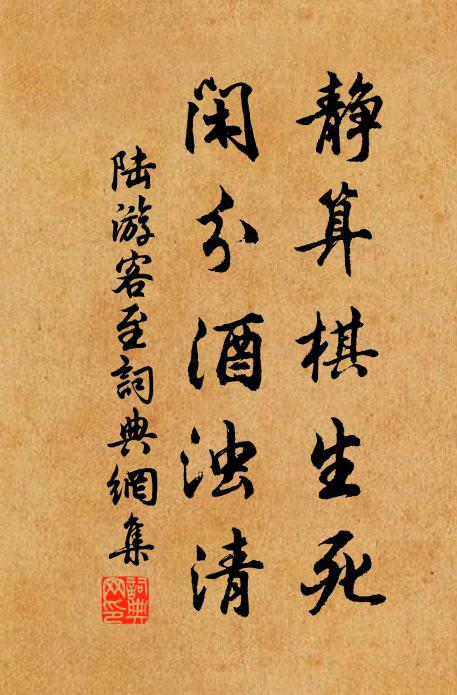 静算棋生死
闲分酒浊清
陆游客至詞典網集
詞典
网印